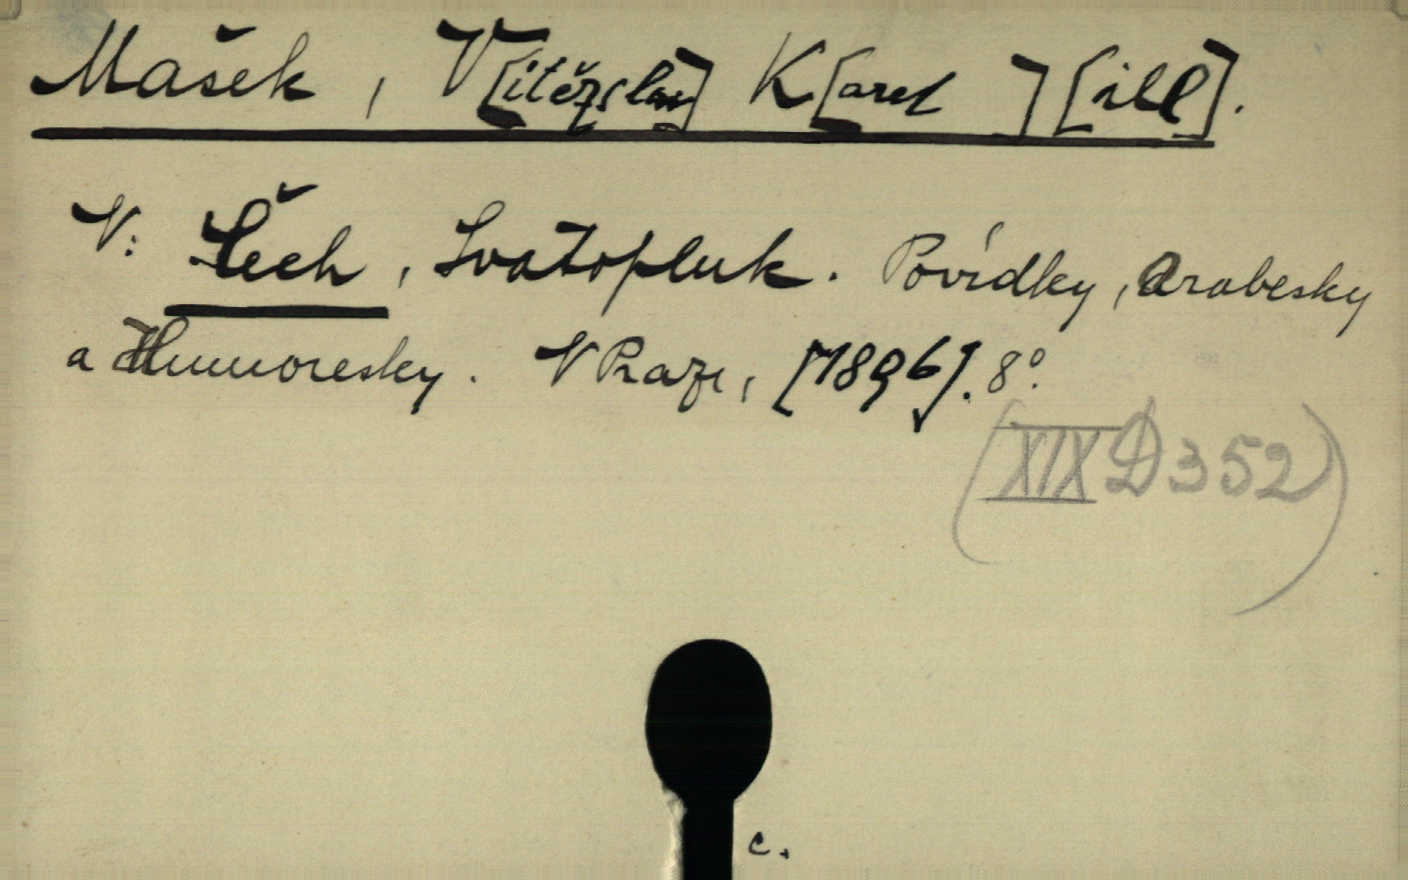 Mašek, V[ítězslav] K[arel] [ill].
V: Čech, Svatopluk. Povídky, Arabesky
a Humoresky. V Praze, [1896]. 8°.
(XIX D 352)
c.